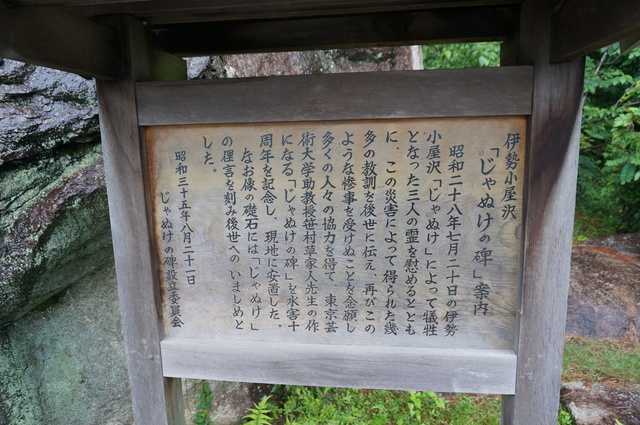 伊勢小屋沢
「じゃぬけの碑」案内
昭和二十八年七月二十日の伊勢
小屋沢「じゃぬけ」によって犠牲
となった三人の霊を慰めるととも
に、この災害によって得られた幾
多の教訓を後世に伝え、再びこの
ような惨事を受けぬことを念願し
多くの人々の協力を得て、東京芸
術大学助教授笹村草家人先生の作
になる「じゃぬけの碑」を水害十
周年を記念し、現地に安置した。
なお像の礎石には「じゃぬけ」
の俚言を刻み後世への いましめと
した。
昭和三十五年八月二十一日
じゃぬけの碑設立委員会